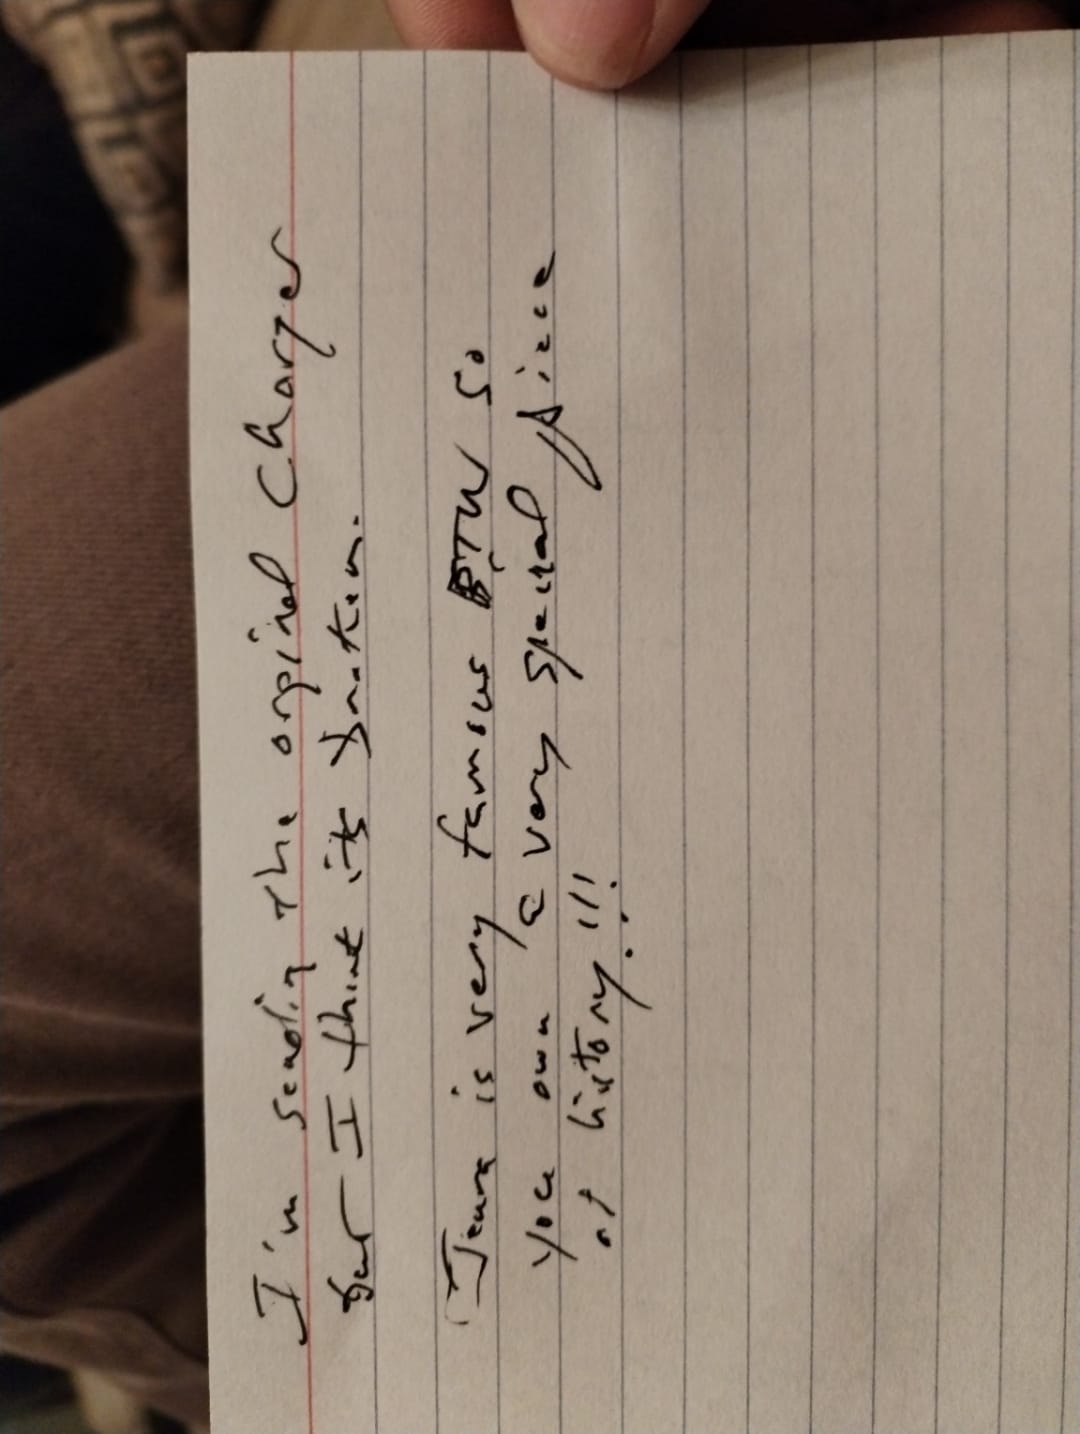 I'm sending the original Charger
but I think its broken.
Jeana is very famous BTW so
you own a very special piece
of history!!!